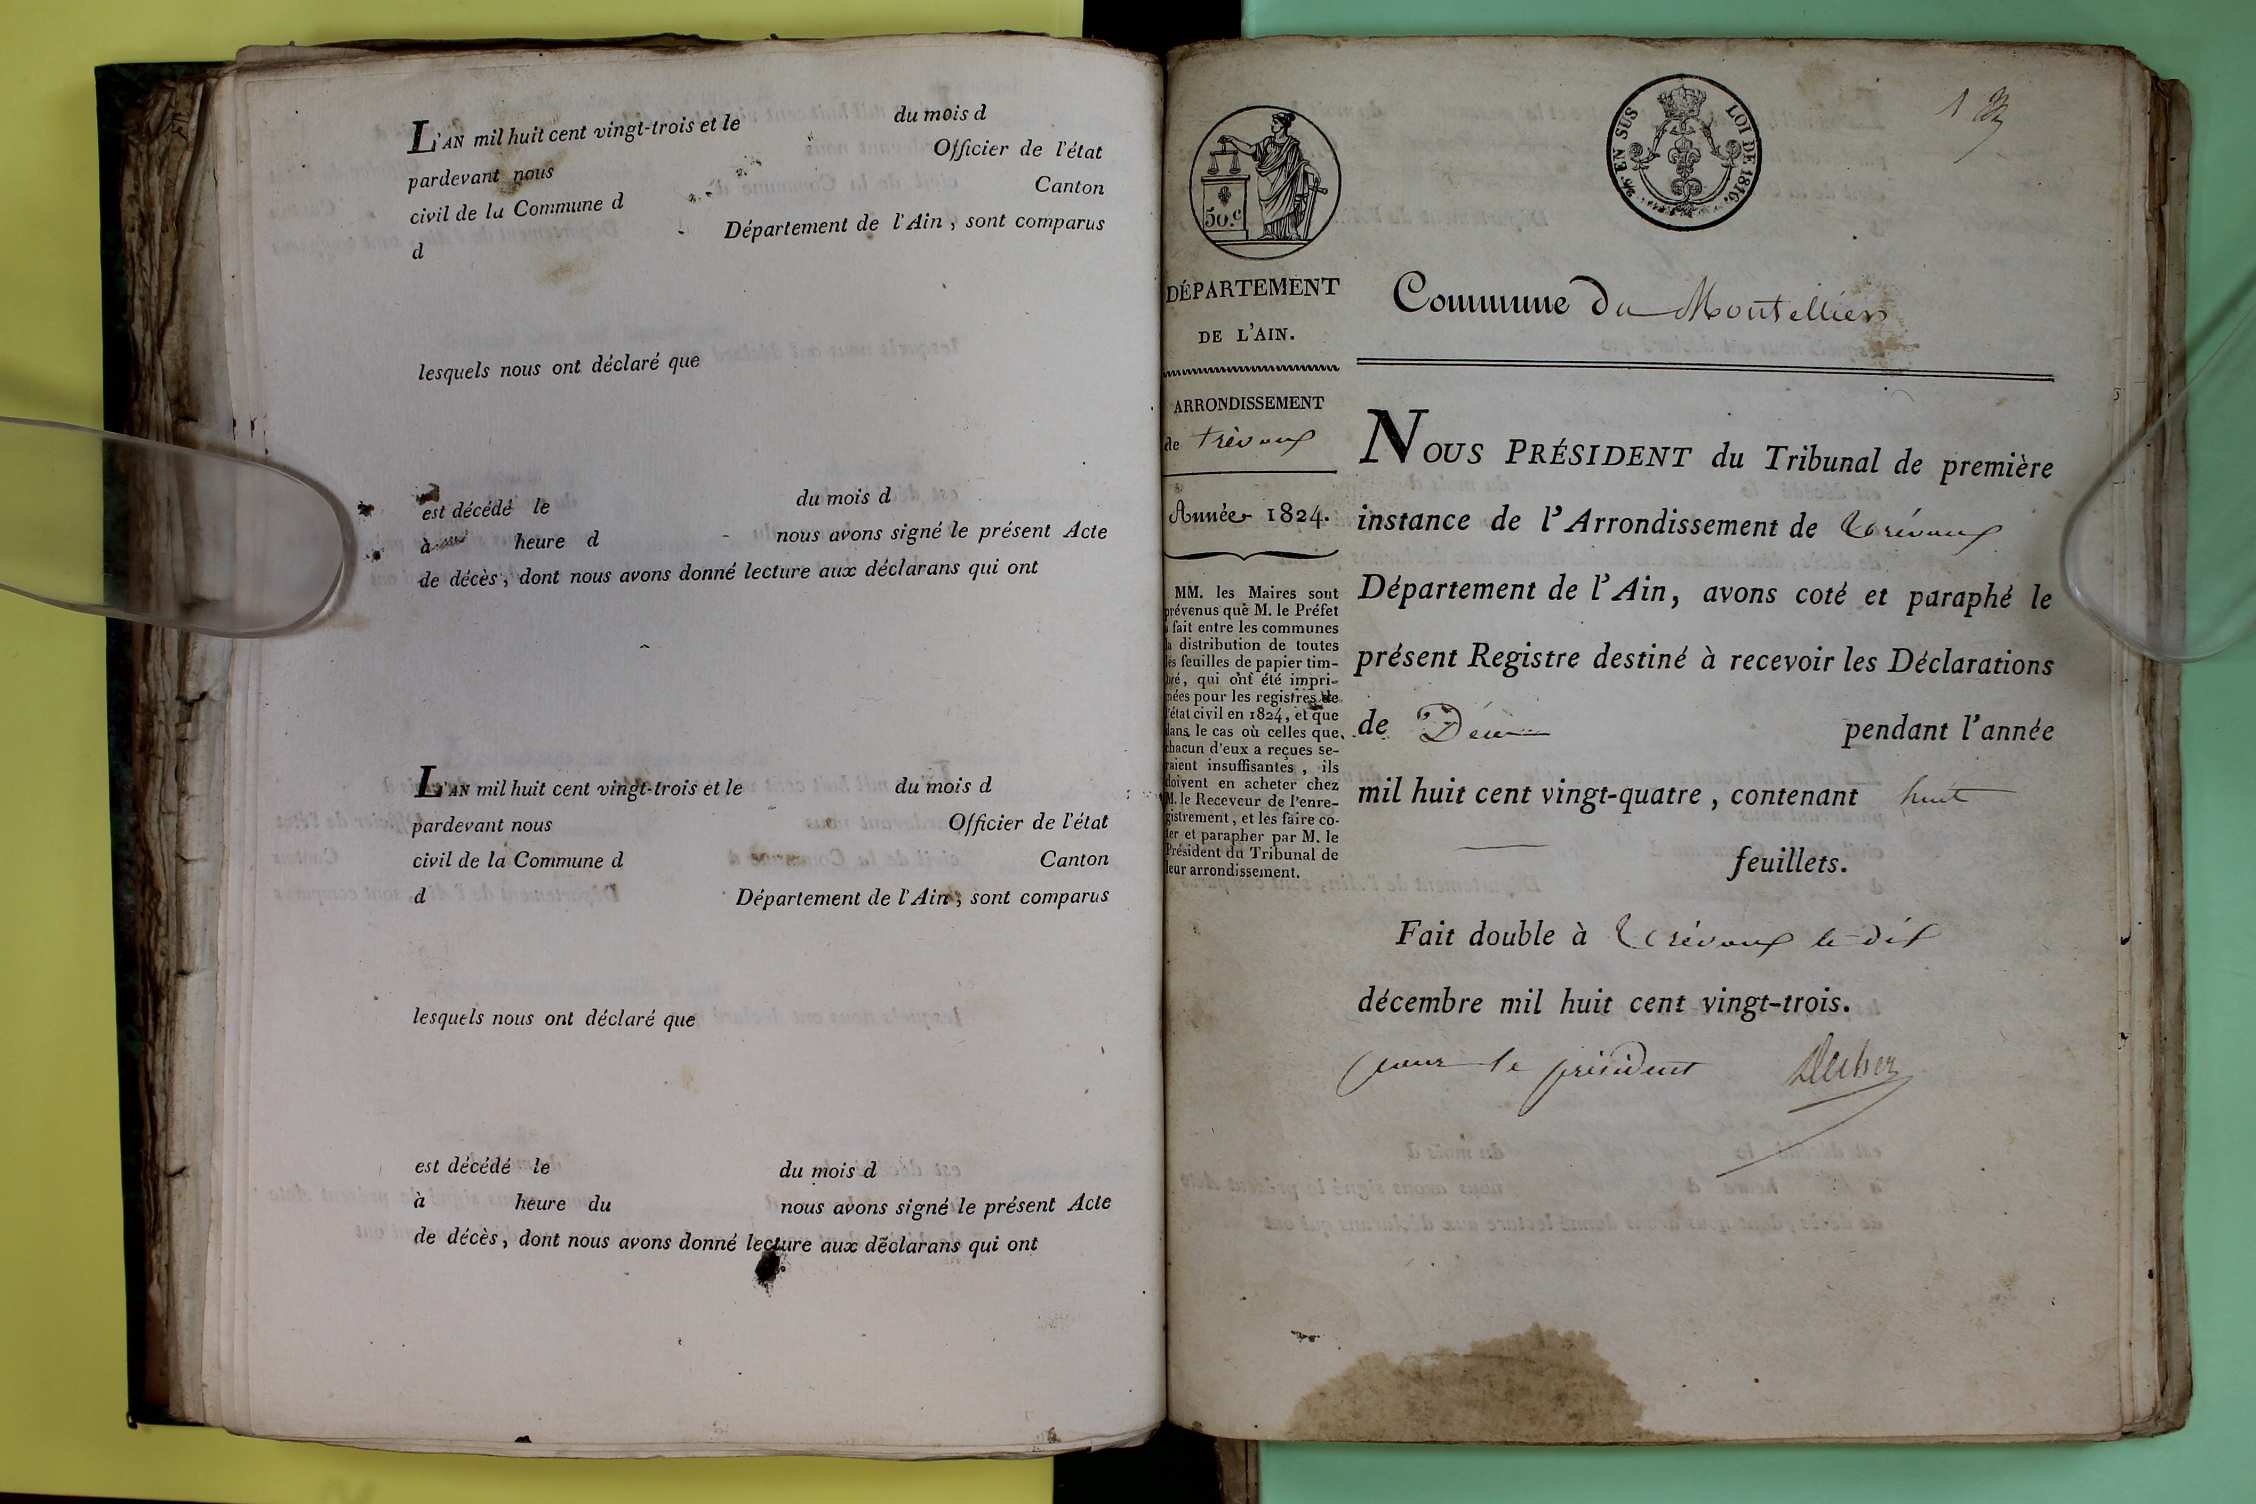 L'AN mil huit cent vingt-trois et le du mois d
pardevant nous Officier de l'état
civil de la Commune d Canton
d Département de l'Ain, sont comparus
lesquels nous ont déclaré que
est décédé le du mois d
à heure d nous avons signé le présent Acte
de décès, dont nous avons donné lecture aux déclarans qui ont
L'AN mil huit cent vingt-trois et le du mois d
pardevant nous Officier de l'état
civil de la Commune d Canton
d Département de l'Ain, sont comparus
lesquels nous ont déclaré que
est décédé le du mois d
à heure du nous avons signé le présent Acte
de décès, dont nous avons donné lecture aux déclarans qui ont
50.c
EN SUS LOI DE 1816.
1
DÉPARTEMENT
DE L'AIN.
ARRONDISSEMENT
de trévoux
Année 1824.
MM. les Maires sont
prévenus que M. le Préfet
a fait entre les communes
la distribution de toutes
les feuilles de papier tim-
bré, qui ont été impri-
mées pour les registres de
l'état civil en 1824, et que
dans le cas où celles que
chacun d'eux a reçues se-
raient insuffisantes, ils
doivent en acheter chez
M. le Receveur de l'enre-
gistrement, et les faire co-
ter et parapher par M. le
Président du Tribunal de
leur arrondissement.
Commune du Montellier
NOUS PRÉSIDENT du Tribunal de première
instance de l'Arrondissement de Trévoux
Département de l'Ain, avons coté et paraphé le
présent Registre destiné à recevoir les Déclarations
de Décès pendant l'année
mil huit cent vingt-quatre, contenant huit
feuillets.
Fait double à Trévoux le dix
décembre mil huit cent vingt-trois.
pour le président